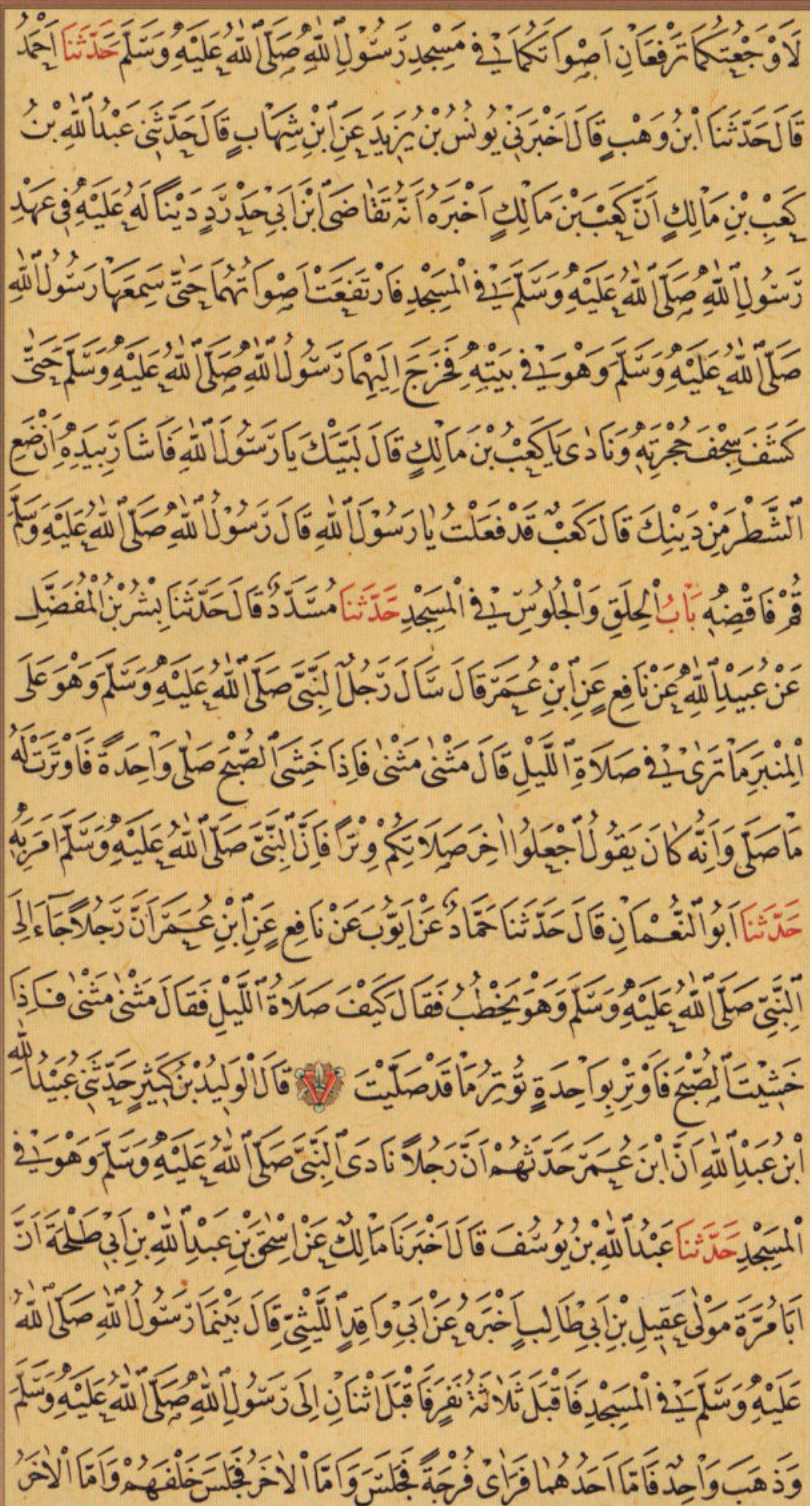 لَاَوْجَعْتُكُمَا تَرْفَعَانِ اَصْوَاتَكُمَا فِي مَسْجِدِ رَسُولِ اللّٰهِ صَلَّى اللّٰهُ عَلَيْهِ وَسَلَّمَ حَدَّثَنَا اَحْمَدُ
قَالَ حَدَّثَنَا ابْنُ وَهْبٍ قَالَ اَخْبَرَنِي يُونُسُ بْنُ يَزِيدَ عَنِ ابْنِ شِهَابٍ قَالَ حَدَّثَنِي عَبْدُ اللّٰهِ بْنُ
كَعْبِ بْنِ مَالِكٍ اَنَّ كَعْبَ بْنَ مَالِكٍ اَخْبَرَهُ اَنَّهُ تَقَاضَى ابْنَ اَبِي حَدْرَدٍ دَيْنًا لَهُ عَلَيْهِ فِي عَهْدِ
رَسُولِ اللّٰهِ صَلَّى اللّٰهُ عَلَيْهِ وَسَلَّمَ فِي الْمَسْجِدِ فَارْتَفَعَتْ اَصْوَاتُهُمَا حَتَّى سَمِعَهَا رَسُولُ اللّٰهِ
صَلَّى اللّٰهُ عَلَيْهِ وَسَلَّمَ وَهْوَ فِي بَيْتِهِ فَخَرَجَ اِلَيْهِمَا رَسُولُ اللّٰهِ صَلَّى اللّٰهُ عَلَيْهِ وَسَلَّمَ حَتَّى
كَشَفَ سِجْفَ حُجْرَتِهِ وَنَادٰى يَا كَعْبُ بْنَ مَالِكٍ قَالَ لَبَّيْكَ يَا رَسُولَ اللّٰهِ فَاَشَارَ بِيَدِهِ اَنْ ضَعِ
الشَّطْرَ مِنْ دَيْنِكَ قَالَ كَعْبٌ قَدْ فَعَلْتُ يَا رَسُولَ اللّٰهِ قَالَ رَسُولُ اللّٰهِ صَلَّى اللّٰهُ عَلَيْهِ وَسَلَّمَ
قُمْ فَاقْضِهِ بَابُ الْحِلَقِ وَالْجُلُوسِ فِي الْمَسْجِدِ حَدَّثَنَا مُسَدَّدٌ قَالَ حَدَّثَنَا بِشْرُ بْنُ الْمُفَضَّلِ
عَنْ عُبَيْدِ اللّٰهِ عَنْ نَافِعٍ عَنِ ابْنِ عُمَرَ قَالَ سَاَلَ رَجُلٌ النَّبِيَّ صَلَّى اللّٰهُ عَلَيْهِ وَسَلَّمَ وَهْوَ عَلَى
الْمِنْبَرِ مَا تَرٰى فِي صَلَاةِ اللَّيْلِ قَالَ مَثْنٰى مَثْنٰى فَاِذَا خَشِيَ الصُّبْحَ صَلّٰى وَاحِدَةً فَاَوْتَرَتْ لَهُ
مَا صَلَّى وَاِنَّهُ كَانَ يَقُولُ اجْعَلُوا اٰخِرَ صَلَاتِكُمْ وِتْرًا فَاِنَّ النَّبِيَّ صَلَّى اللّٰهُ عَلَيْهِ وَسَلَّمَ اَمَرَ بِهِ
حَدَّثَنَا اَبُو النُّعْمَانِ قَالَ حَدَّثَنَا حَمَّادٌ عَنْ اَيُّوبَ عَنْ نَافِعٍ عَنِ ابْنِ عُمَرَ اَنَّ رَجُلًا جَاءَ اِلَى
النَّبِيِّ صَلَّى اللّٰهُ عَلَيْهِ وَسَلَّمَ وَهْوَ يَخْطُبُ فَقَالَ كَيْفَ صَلَاةُ اللَّيْلِ فَقَالَ مَثْنٰى مَثْنٰى فَاِذَا
خَشِيتَ الصُّبْحَ فَاَوْتِرْ بِوَاحِدَةٍ تُوتِرُ مَا قَدْ صَلَّيْتَ قَالَ الْوَلِيدُ بْنُ كَثِيرٍ حَدَّثَنِي عُبَيْدُ اللّٰهِ
ابْنُ عَبْدِ اللّٰهِ اَنَّ ابْنَ عُمَرَ حَدَّثَهُمْ اَنَّ رَجُلًا نَادَى النَّبِيَّ صَلَّى اللّٰهُ عَلَيْهِ وَسَلَّمَ وَهْوَ فِي
الْمَسْجِدِ حَدَّثَنَا عَبْدُ اللّٰهِ بْنُ يُوسُفَ قَالَ اَخْبَرَنَا مَالِكٌ عَنْ اِسْحٰقَ بْنِ عَبْدِ اللّٰهِ بْنِ اَبِي طَلْحَةَ اَنَّ
اَبَا مُرَّةَ مَوْلٰى عَقِيلِ بْنِ اَبِي طَالِبٍ اَخْبَرَهُ عَنْ اَبِي وَاقِدٍ اللَّيْثِيِّ قَالَ بَيْنَمَا رَسُولُ اللّٰهِ صَلَّى اللّٰهُ
عَلَيْهِ وَسَلَّمَ فِي الْمَسْجِدِ فَاَقْبَلَ ثَلَاثَةُ نَفَرٍ فَاَقْبَلَ اثْنَانِ اِلَى رَسُولِ اللّٰهِ صَلَّى اللّٰهُ عَلَيْهِ وَسَلَّمَ
وَذَهَبَ وَاحِدٌ فَاَمَّا اَحَدُهُمَا فَرَاٰى فُرْجَةً فَجَلَسَ وَاَمَّا الْاٰخَرُ فَجَلَسَ خَلْفَهُمْ وَاَمَّا الْاٰخَرُ